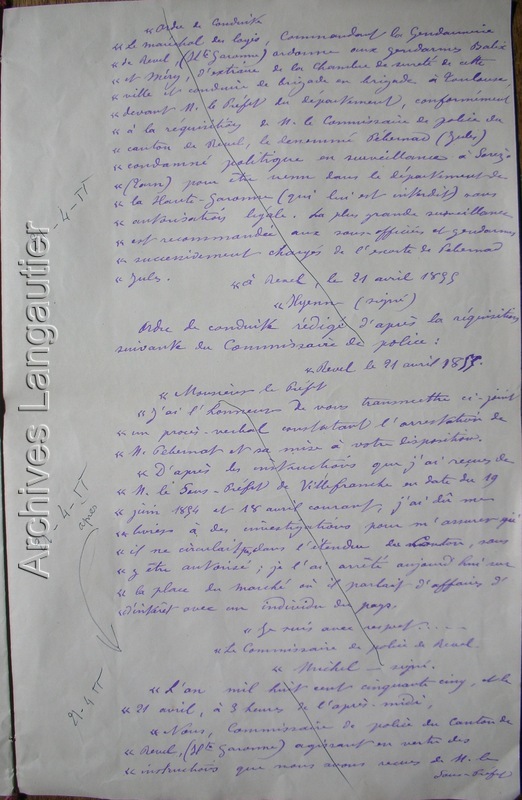 « Ordre de conduite
« Le maréchal des logis, Commandant la Gendarmerie
« de Revel, (Hte Garonne) ordonne aux gendarmes
« et Méry, d'extraire de la Chambre de sureté de cette
« ville et conduire de brigade en brigade à Toulouse,
« devant M. le Préfet du département, conformément
« à la réquisition de M. le Commissaire de police du
« canton de Revel, le dénommé Pehernad (Jules)
« condamné politique en surveillance à Sorèze
« (Tarn) pour être venu dans le département de
« la Haute-Garonne (qui lui est interdit) sans
« autorisation légale. La plus grande surveillance
« est recommandée aux sous-officiers et gendarmes
« successivement chargés de l'escorte de Pehernad
« Jules.
« à Revel, le 21 avril 1855
« Hyenn (signé)
Ordre de conduite rédigé d'après la réquisition
suivante du Commissaire de police :
« Revel le 21 avril 1855.
« Monsieur le Préfet
« J'ai l'honneur de vous transmettre ci-joint
« un procès-verbal constatant l'arrestation de
« M. Pehernat et sa mise à votre disposition.
« D'après des instructions que j'ai reçues de
« M. le Sous-Préfet de Villefranche en date du 19
« juin 1854 et 18 avril courant, j'ai dû me
« livrer à des investigations pour m'assurer qu'
« il ne circulait pas dans l'étendue du Canton, sans
« y être autorisé ; je l'ai arrêté aujourd'hui sur
« la place du marché où il parlait d'affaires d'
« d'intérêt avec un individu du pays.
« Je suis avec respect.....
« Le Commissaire de police de Revel
« Michel — signé.
« L'an mil huit cent cinquante cinq, et le
« 21 avril, à 3 heures de l'après-midi,
« Nous, Commissaire de police du Canton de
« Revel, (Hte Garonne) agissant en vertu des
« instructions que nous avons reçues de M. le
Sous-Préfet
Archives Langautier
après